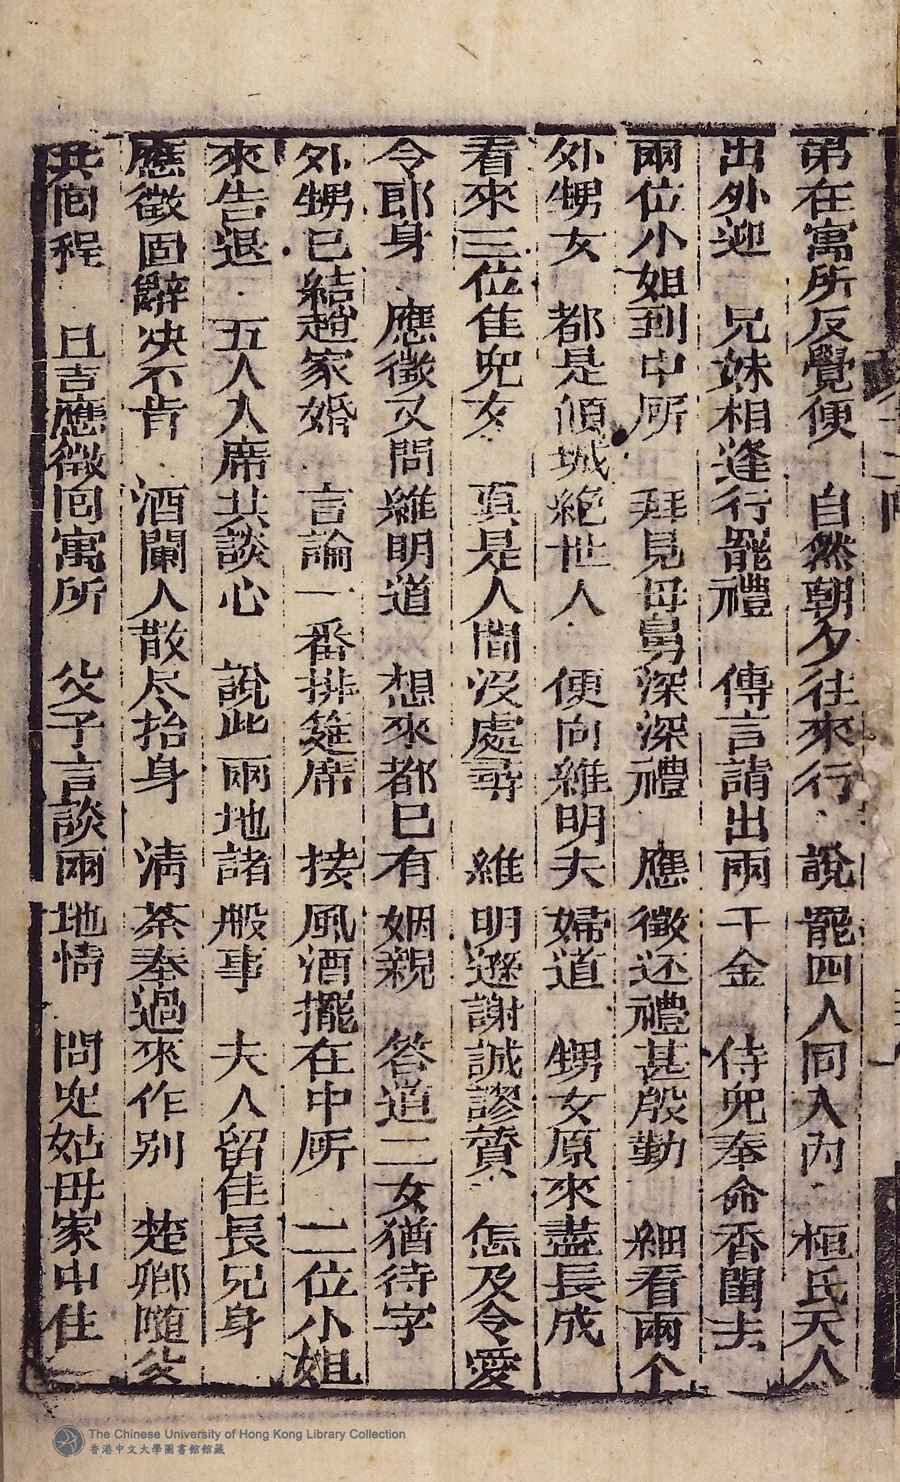 弟在寓所反覺便　自然朝夕往來行　說罷四人同入內　桓氏夫人
出外迎　兄妹相逢行罷禮　傳言請出兩千金　侍兒奉命香閨去
兩位小姐到中所　拜見母舅深深禮　應徵还禮甚殷勤　細看兩个
外甥女　都是傾城絶世人　便向維明夫婦道　甥女原來盡長成
看來三位佳兒女　真是人間沒處尋　維明遜謝誠謬賛　怎及令愛
令郎身　應徵又問維明道　想來都已有姻親　答道二女猶待字
外甥已結趙家婚　言論一番排筵席　接風酒擺在中所　二位小姐
來告退　五人入席共談心　說此兩地諸般事　夫人留住長兄身
應徵固辭决不肯　酒闌人散尽抬身　淸茶奉過來作别　楚卿随父
共囘程　且言應徵囘寓所　父子言談兩地情　問児姑母家中住
The Chinese University of Hong Kong Library Collection
香港中文大學圖書館館藏